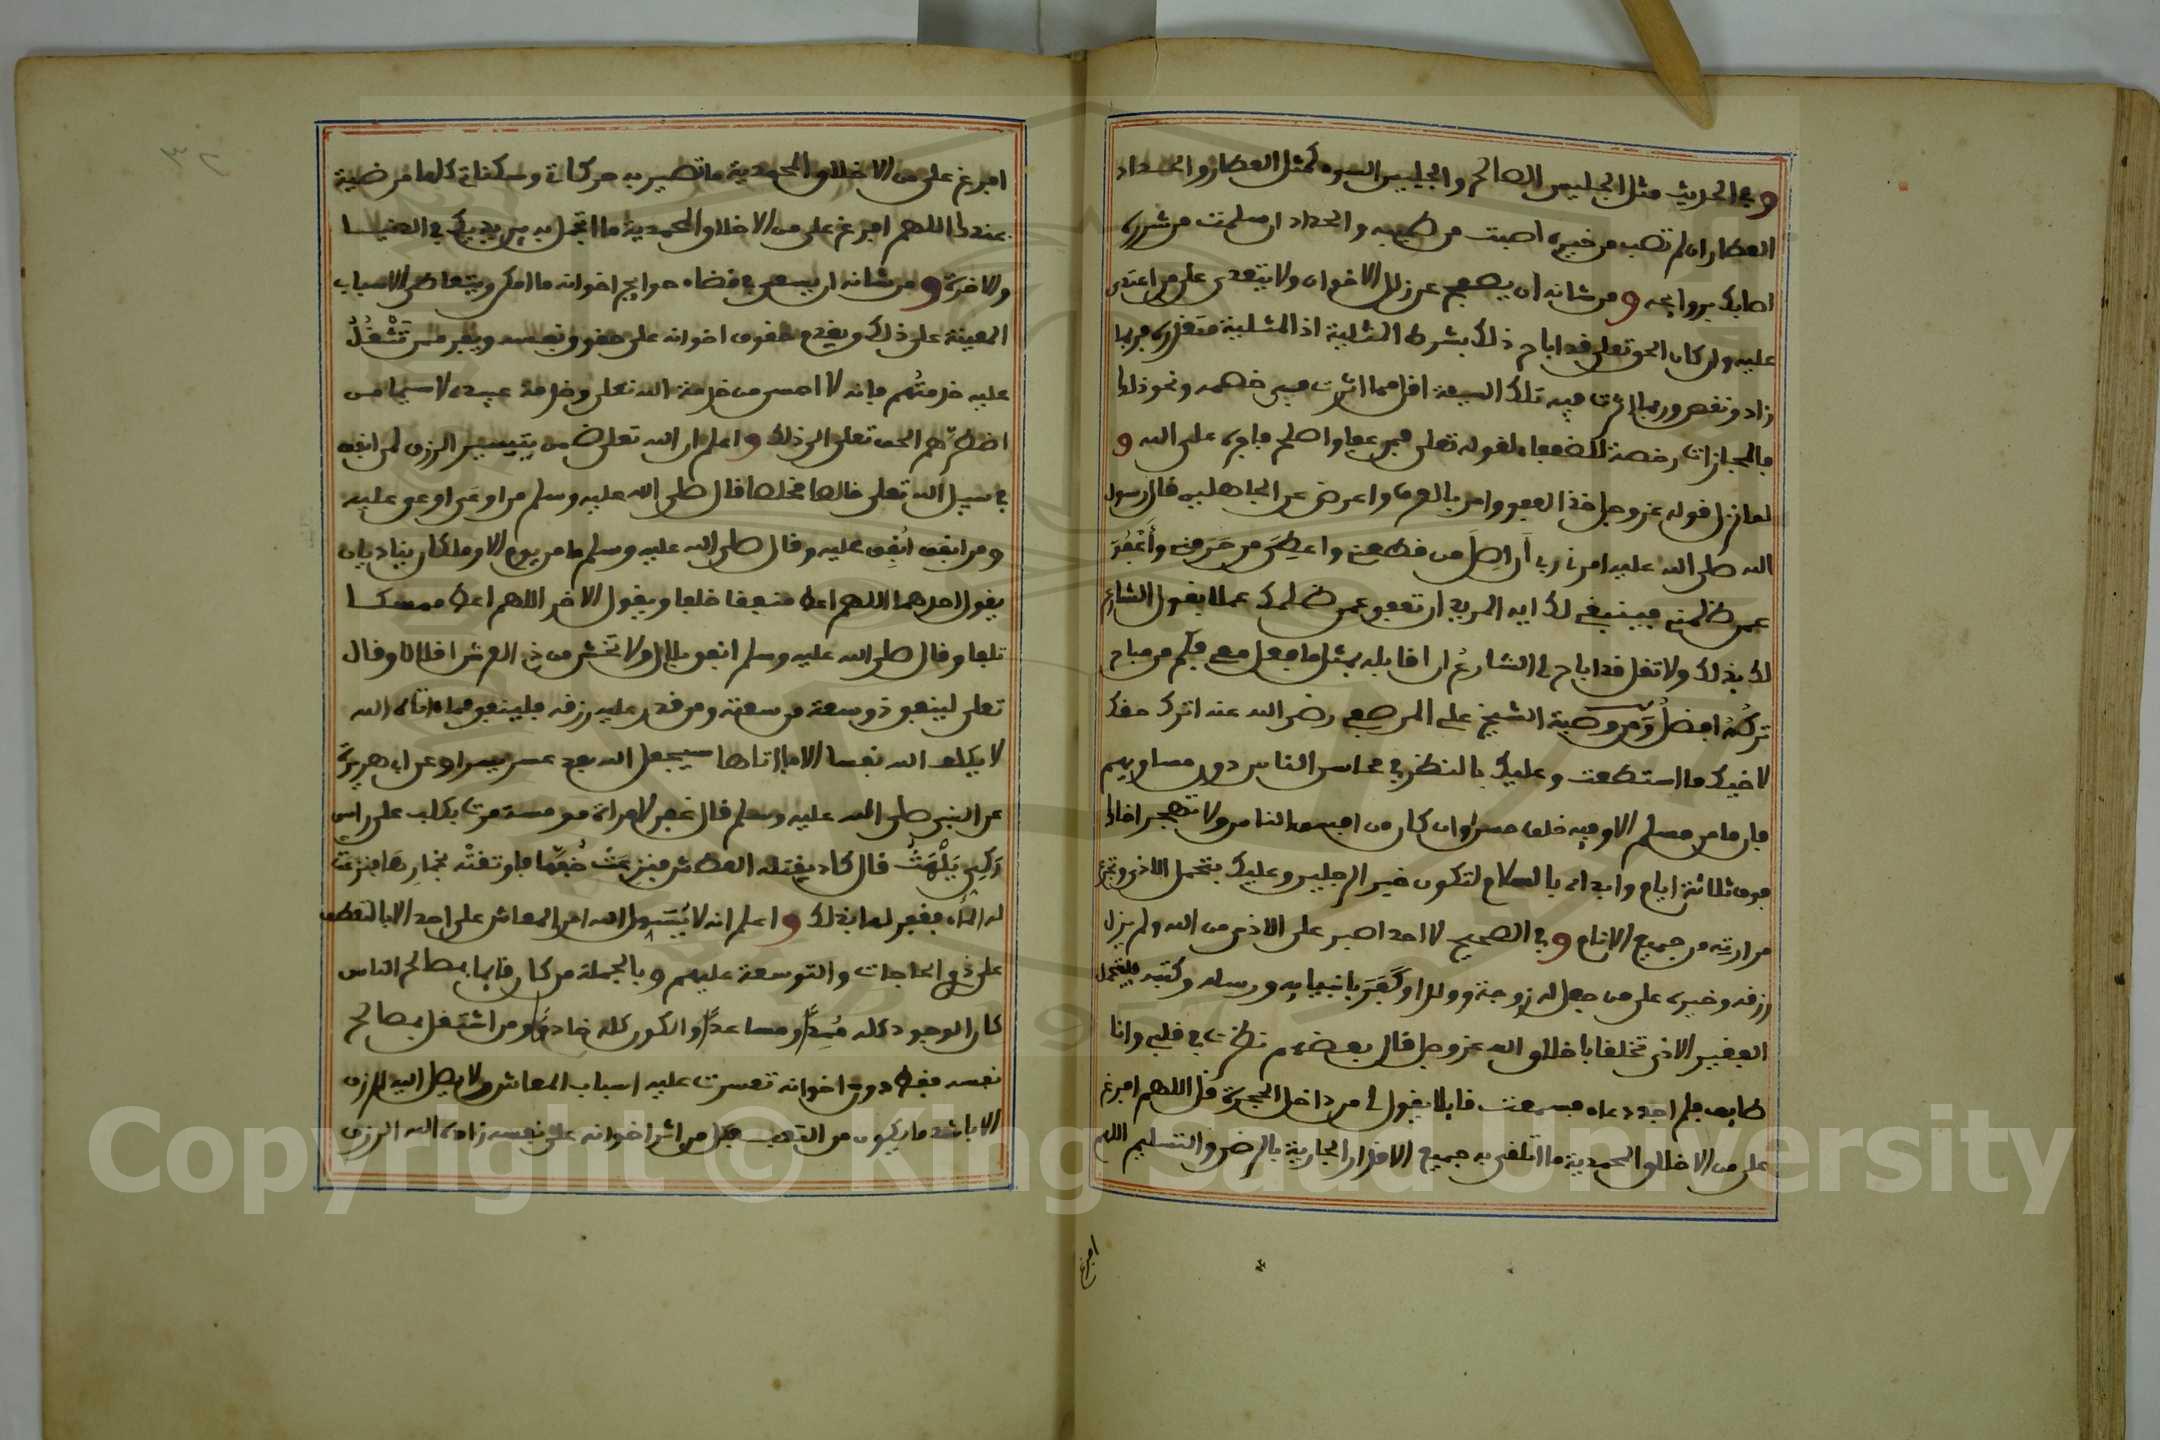 وفي الحديث مثل الجليس الصالح والجليس السوء كمثل العطار والحداد
العطار ان لم تصب من خيره اصبت من طيبه والحداد ان سلمت من شرره
اصابك بروايحه ومن شانه ان يصفح عن زلل الاخوان ولا يتعدى على من اعتدى
عليه وان كان الحق تعلى قد اباح ذلك بشرط المثلية اذ المثلية متعذرة فربما
زاد ونقص وربما اثرت فيه تلك السيئة اقل مما اثرت في خصمه ونحو ذلك
فالمجازات رخصة للضعفاء لقوله تعلى فمن عفا واصلح فاجره على الله و
لما نزل قوله عز وجل خذ العفو وامر بالعرف واعرض عن الجاهلين قال رسول
الله صلى الله عليه امرني ربي أن اصل من قطعني واعطي من حرمني وأغفر
عمن ظلمني فينبغي لك ايه المريد ان تعفو عمن ظلمك عملا بقول الشارع
لك بذلك ولا تقل قد اباح لي الشارع ان اقابله بمثل ما فعل معي فكم من مباح
تركه افضل ومن وصية الشيخ علي المرصفي رضي الله عنه اترك حقك
لاخيك ما استطعت وعليك بالنظر في محاسن الناس دون مساويهم
فان ما من مسلم الا وفيه خلق حسن وان كان من افسق الناس ولا تهجر اخاك
فوق ثلاثة ايام وابداه بالسلام لتكون خير الرجلين وعليك بتحمل الاذى وتجرع
مرارته من جميع الانام وفي الصحيح لا احد اصبر على الاذى من الله ولم يزل
رزقه وخيره على من جعل له زوجة وولدا وكفر بانبيايه ورسله وكتبه فليتحمل
الفقير الاذى تخلقا باخلاق الله عز وجل قال بعضهم نظرت في قلبي وانا
طايف فلم اجد دعاء فسمعت قايلا يقول لي من داخل الحجرة قل اللهم افرغ
علي من الاخلاق المحمدية ما اتلقى به جميع الاقدار الجارية بالرضى والتسليم اللهم
افرغ
افرغ علي من الاخلاق المحمدية ما تصير به حركاتي وسكناتي كلها مرضية
عندك اللهم افرغ علي من الاخلاق المحمدية ما اتجمل به بين يديك في الدنيا
والاخرة ومن شانه ان يسعى في قضاء حوايج اخوانه ما امكن ويتعاطى الاسباب
المعينة على ذلك ويقدم حقوق اخوانه على حقوق نفسه ويفر ممن تَشْغُلُ
عليه خدمتهم فانه لا احسن من خدمة الله تعلى وخدمة عبيده لا سيما من
اضطرهم الحق تعلى الى ذلك واعلم ان الله تعلى ضمن بتيسير الرزق لمن انفق
في سبيل الله تعلى خالصا مخلصا قال صلى الله عليه وسلم من اوعى اوعي عليه
ومن انفق انفق عليه وقال صلى الله عليه وسلم ما من يوم الا وملكان يناديان
يقول احدهما اللهم اعط منفقا خلفا ويقول الاخر اللهم اعط ممسكا
تلفا وقال صلى الله عليه وسلم انفق بلال ولا تخش من ذي العرش اقلالا وقال
تعلى لينفق ذو سعة من سعته ومن قدر عليه رزقه فلينفق مما ءاتاه الله
لا يكلف الله نفسا الا ما ءاتاها سيجعل الله بعد عسر يسرا وعن ابي هريرة
عن النبي صلى الله عليه وسلم قال غفر لامراة مومسة مرت بكلب على راس
رَكِي يَلْهَثُ قال كاد يقتله العطش فنزعت خفها فاوثقته بخمارها فنزعت
له الماء فغفر لها بذلك واعلم انه لا يُيَسِّرُ الله امر المعاش على احد الا بالتعطف
على ذوي الحاجات والتوسعة عليهم وبالجملة من كان قايما بمصالح الناس
كان الوجود كله مُمِدًّا ومساعدًا والكون كله خادمًا ومن اشتغل بمصالح
نفسه فقط دون اخوانه تعسرت عليه اسباب المعاش ولا يصل اليه الرزق
الا باشد ما يكون من التعب فكل من اثر اخوانه على نفسه زاده الله الرزق